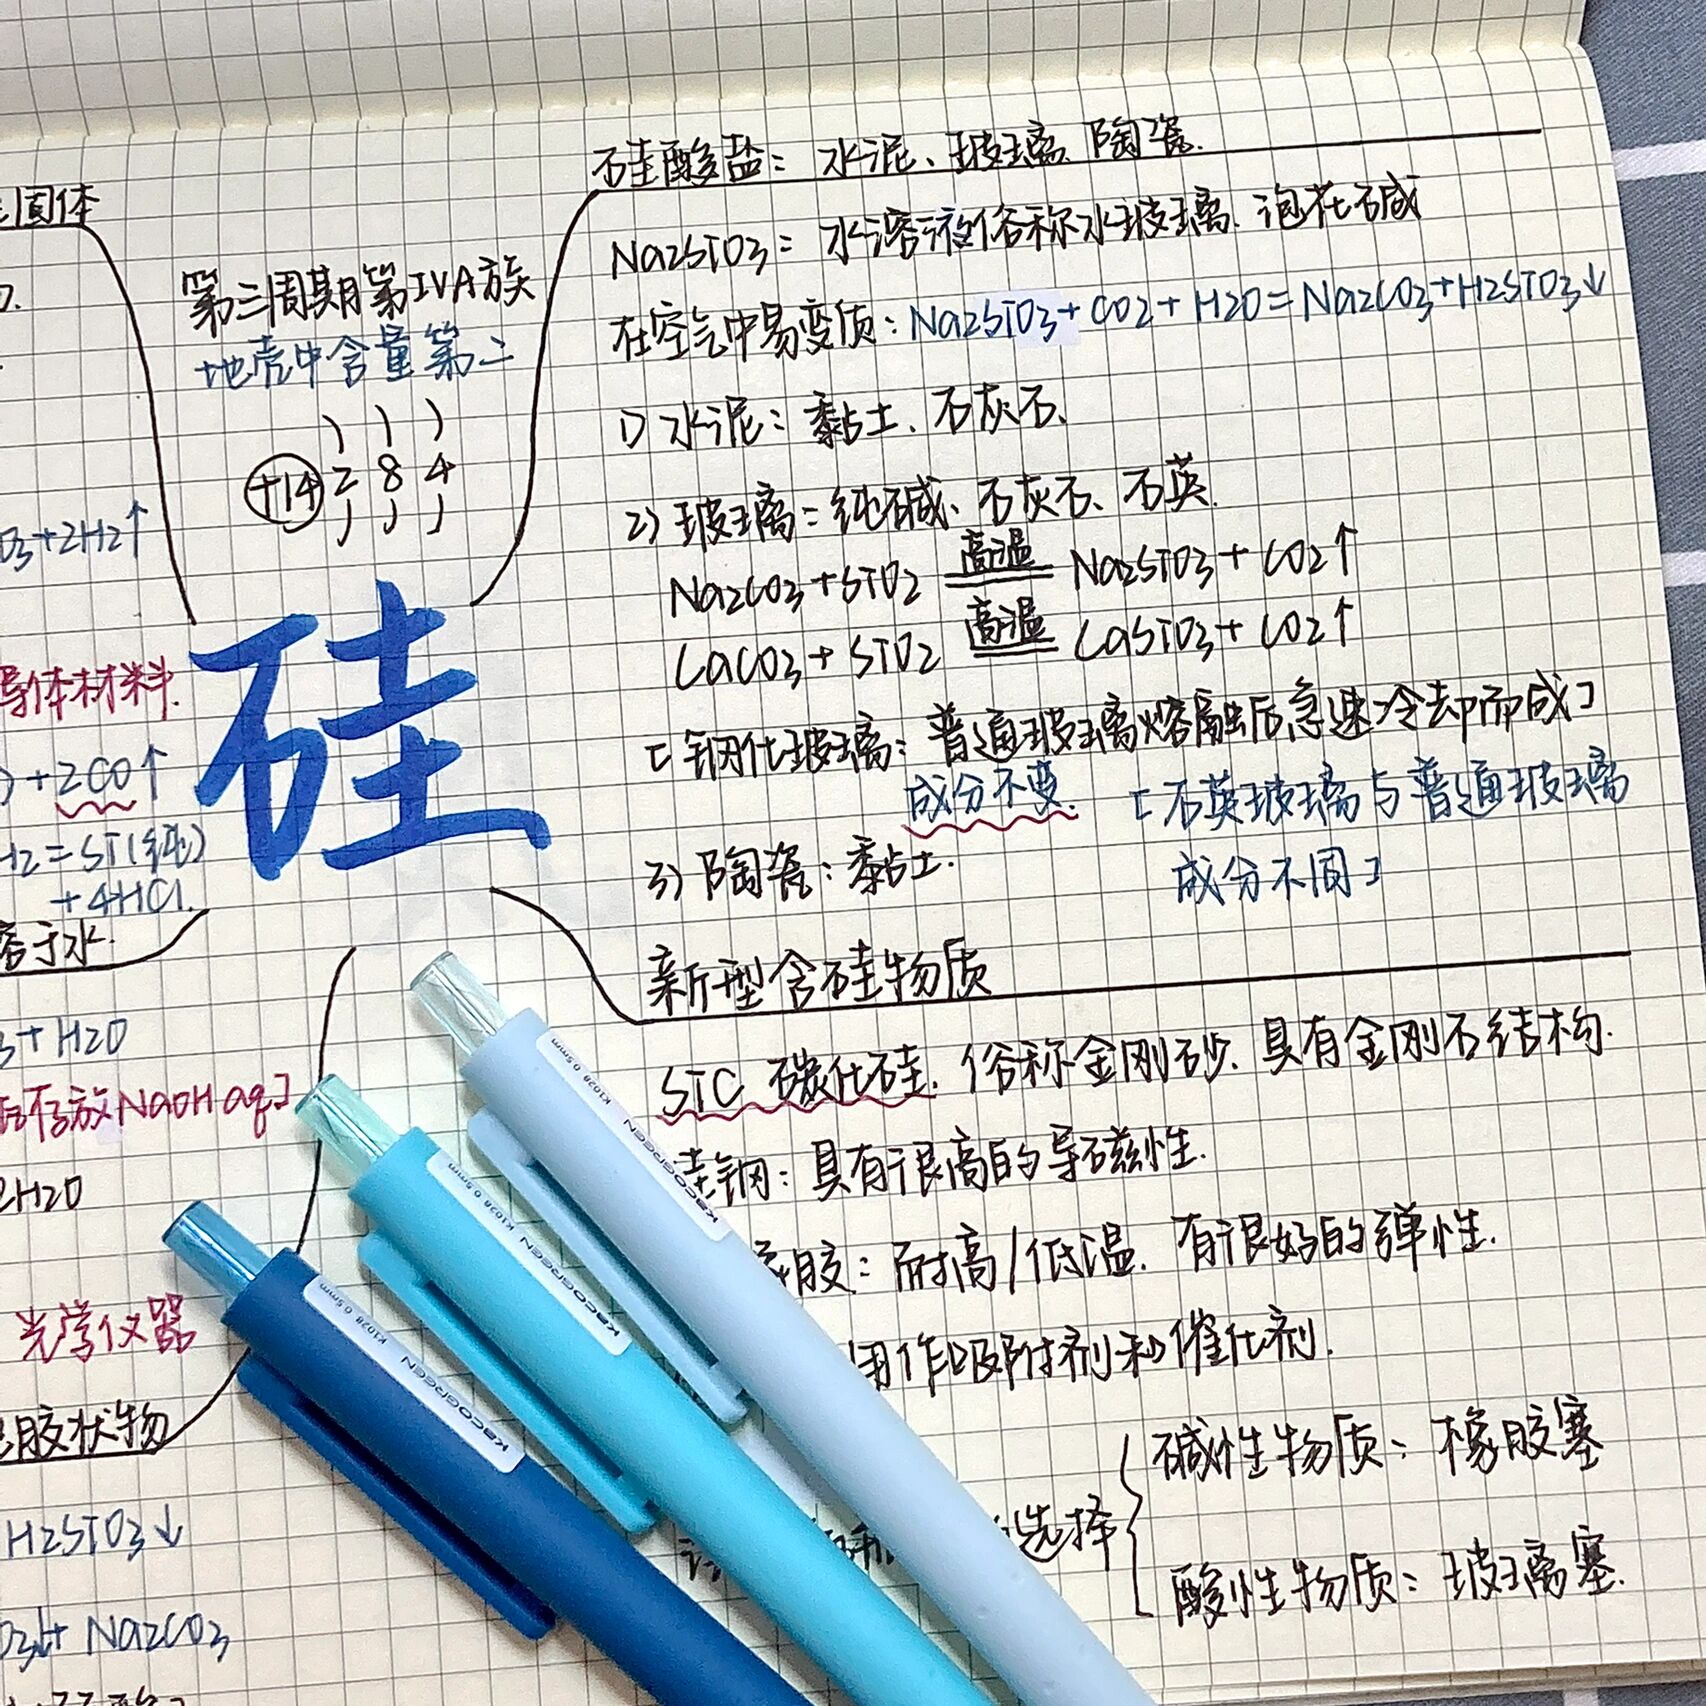 硅
第三周期第IVA族
地壳中含量第二
+14 2 8 4
固体
O3+2H2↑
导体材料.
+2CO↑
H2=Si(纯)
+4HCl.
溶于水.
3+H2O
存放NaOH aq]
2H2O
光学仪器
胶状物
H2SiO3↓
O3↓+Na2CO3
硅酸盐: 水泥、玻璃、陶瓷.
Na2SiO3: 水溶液俗称水玻璃. 泡花碱
在空气中易变质: Na2SiO3+CO2+H2O=Na2CO3+H2SiO3↓
1) 水泥: 黏土、石灰石、
2) 玻璃: 纯碱、石灰石、石英.
Na2CO3+SiO2 高温 Na2SiO3+CO2↑
CaCO3+SiO2 高温 CaSiO3+CO2↑
[钢化玻璃: 普通玻璃熔融后急速冷却而成]
成分不变. [石英玻璃与普通玻璃
成分不同]
3) 陶瓷: 黏土.
新型含硅物质
SiC 碳化硅. 俗称金刚砂. 具有金刚石结构.
硅钢: 具有很高的导磁性.
橡胶: 耐高/低温. 有很好的弹性.
用作吸附剂和催化剂.
选择
碱性物质: 橡胶塞
酸性物质: 玻璃塞.
KACOGREEN K1028 0.5mm
KACOGREEN K1028 0.5mm
KACOGREEN K1028 0.5mm